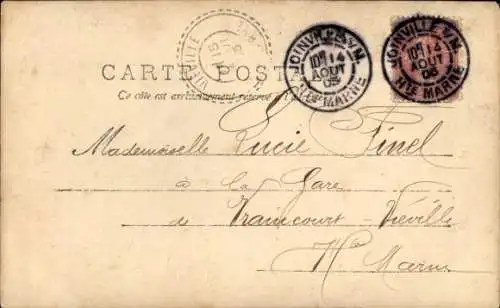 JOINVILLE S/M.
10H 14
AOUT
05
HTE MARNE
JOINVILLE S/M.
10H 14
AOUT
05
HTE MARNE
VIÉVILLE
15
CARTE POSTA
Ce côté est exclusivement réservé à l'
Mademoiselle Lucie Pinel
à la Gare
de Vraincourt-Viéville
Hte Marne